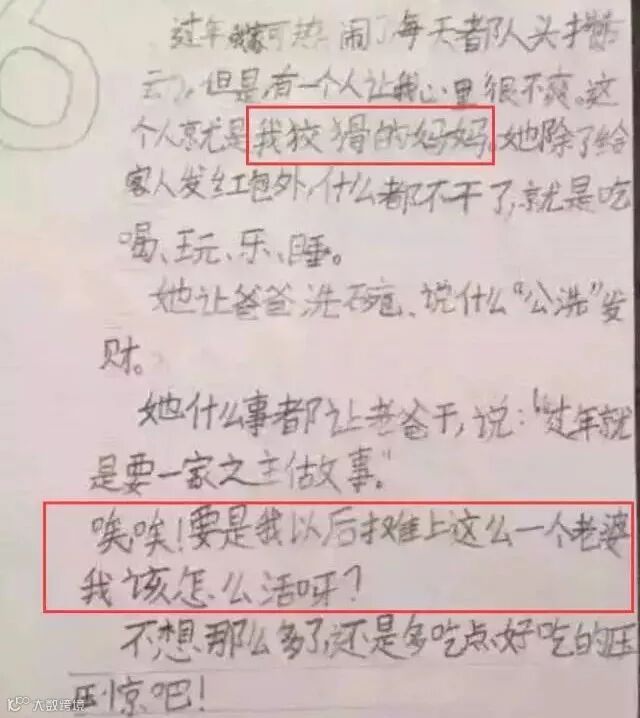 过年我家可热闹了每天都队头才
云),但是,有一个人让我心里很不爽。这
个人就是我狡猾的妈妈。她除了给
客人发红包外,什么都不干了,就是吃
喝、玩、乐、睡。
她让爸爸洗碗、说什么“公洗”发
财。
她什么事都让老爸干,说:“过年就
是要一家之主估故事。”
唉唉!要是我以后摊上这么一个老婆
我该怎么活呀?
不想那么多了,还是多吃点好吃的压
压惊吧!
大数跨境